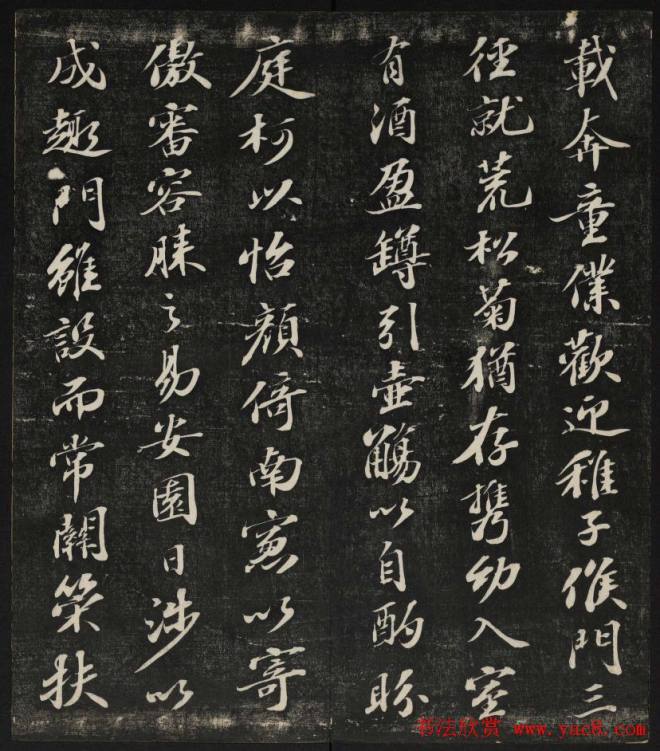 載奔童僕歡迎稚子候門三
徑就荒松菊猶存携幼入室
有酒盈罇引壺觴以自酌眄
庭柯以怡顏倚南窻以寄
傲審容膝之易安園日涉以
成趣門雖設而常關策扶
书法欣赏 www.yac8.com